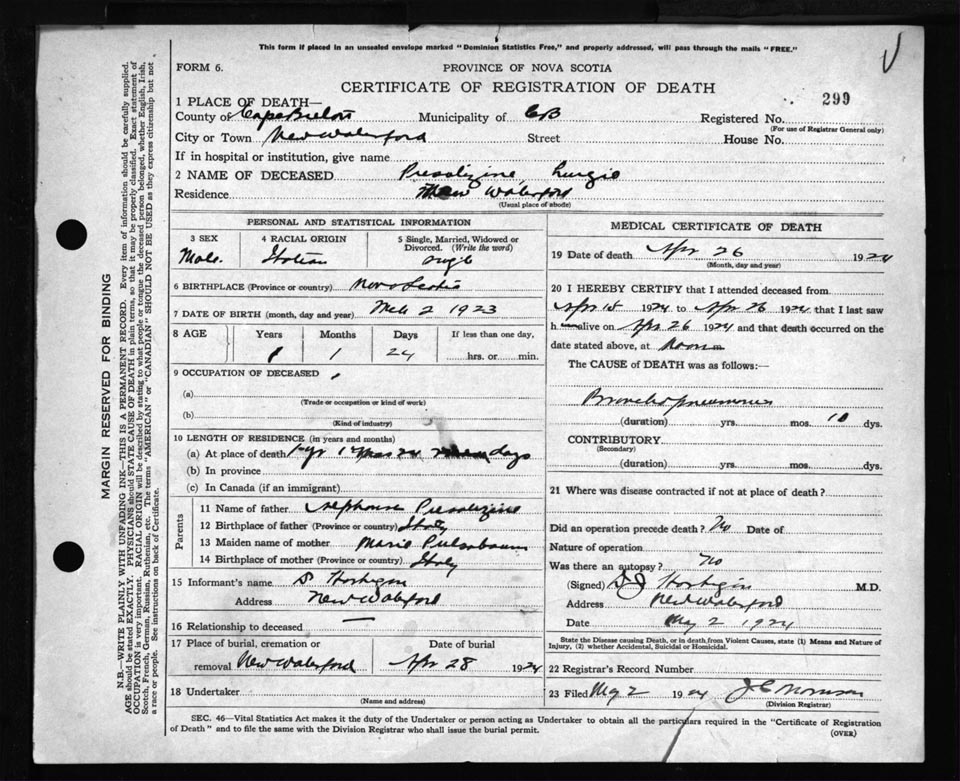 This form if placed in an unsealed envelope marked "Dominion Statistics Free," and properly addressed, will pass through the mails "FREE."
FORM 6.
PROVINCE OF NOVA SCOTIA
CERTIFICATE OF REGISTRATION OF DEATH
299
1 PLACE OF DEATH—
County of Cape Breton Municipality of CB Registered No.
(For use of Registrar General only)
City or Town New Waterford Street House No.
If in hospital or institution, give name
2 NAME OF DECEASED
Residence New Waterford
(Usual place of abode)
PERSONAL AND STATISTICAL INFORMATION
3 SEX 4 RACIAL ORIGIN 5 Single, Married, Widowed or Divorced. (Write the word)
Male. Italian Single
6 BIRTHPLACE (Province or country) Nova Scotia
7 DATE OF BIRTH (month, day and year) Mch 2 1923
8 AGE Years Months Days If less than one day,
1 1 24 hrs. or min.
9 OCCUPATION OF DECEASED
(a)
(Trade or occupation or kind of work)
(b)
(Kind of industry)
10 LENGTH OF RESIDENCE (in years and months)
(a) At place of death 1 yr 1 mos 24 days
(b) In province
(c) In Canada (if an immigrant)
Parents
11 Name of father
12 Birthplace of father (Province or country) Italy
13 Maiden name of mother Marie
14 Birthplace of mother (Province or country) Italy
15 Informant's name
Address New Waterford
16 Relationship to deceased —
17 Place of burial, cremation or Date of burial
removal New Waterford Apr 28 1924
18 Undertaker
(Name and address)
MEDICAL CERTIFICATE OF DEATH
19 Date of death Apr 26 1924
(Month, day and year)
20 I HEREBY CERTIFY that I attended deceased from
Apr 15 1924 to Apr 26 1924 that I last saw
h alive on Apr 26 1924 and that death occurred on the
date stated above, at noon
The CAUSE of DEATH was as follows:—
Broncho pneumonia
(duration) yrs. mos. 10 dys.
CONTRIBUTORY
(Secondary)
(duration) yrs. mos. dys.
21 Where was disease contracted if not at place of death?
Did an operation precede death? No Date of
Nature of operation
Was there an autopsy? No
(Signed) M.D.
Address New Waterford
Date May 2 1924
State the Disease causing Death, or in death from Violent Causes, state (1) Means and Nature of
Injury, (2) whether Accidental, Suicidal or Homicidal.
22 Registrar's Record Number
23 Filed May 2 1924
(Division Registrar)
SEC. 46—Vital Statistics Act makes it the duty of the Undertaker or person acting as Undertaker to obtain all the particulars required in the "Certificate of Registration
of Death" and to file the same with the Division Registrar who shall issue the burial permit.
(OVER)
MARGIN RESERVED FOR BINDING
N.B.—WRITE PLAINLY WITH UNFADING INK—THIS IS A PERMANENT RECORD. Every item of information should be carefully supplied.
AGE should be stated EXACTLY. PHYSICIANS should STATE CAUSE OF DEATH in plain terms, so that it may be properly classified. Exact statement of
OCCUPATION is very important. RACIAL ORIGIN will be described by stating to what people or tongue the deceased person belonged, whether English, Irish,
Scotch, French, German, Russian, Ruthenian, etc. The terms "AMERICAN" or "CANADIAN" SHOULD NOT BE USED as they express citizenship but not
a race or people. See instructions on back of Certificate.